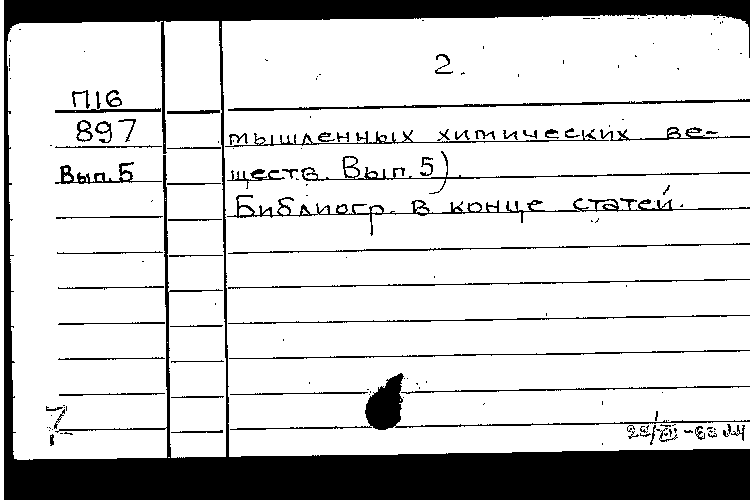 2.
П16
897
Вып. 5
мышленных химических ве-
ществ. Вып. 5).
Библиогр. в конце статей.